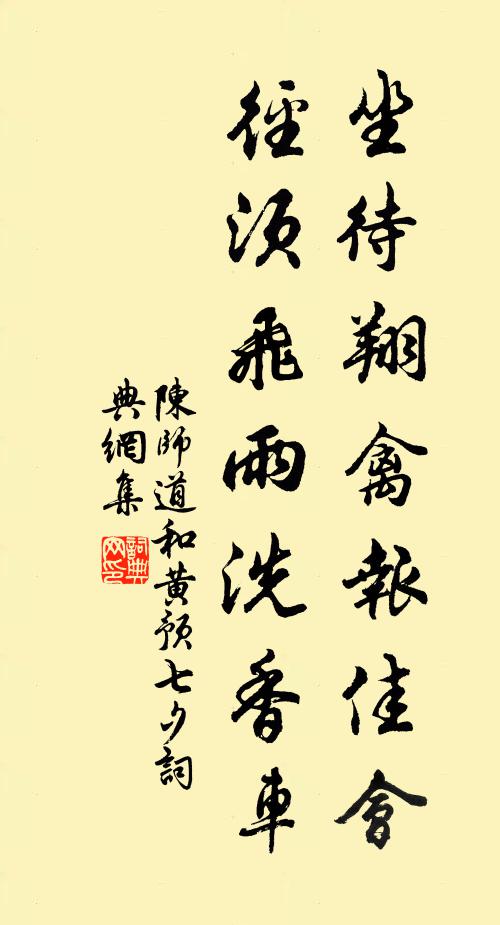 坐待翔禽報佳會
徑須飛雨洗香車
陳師道和黃預七夕詞
典網集
詞典網印